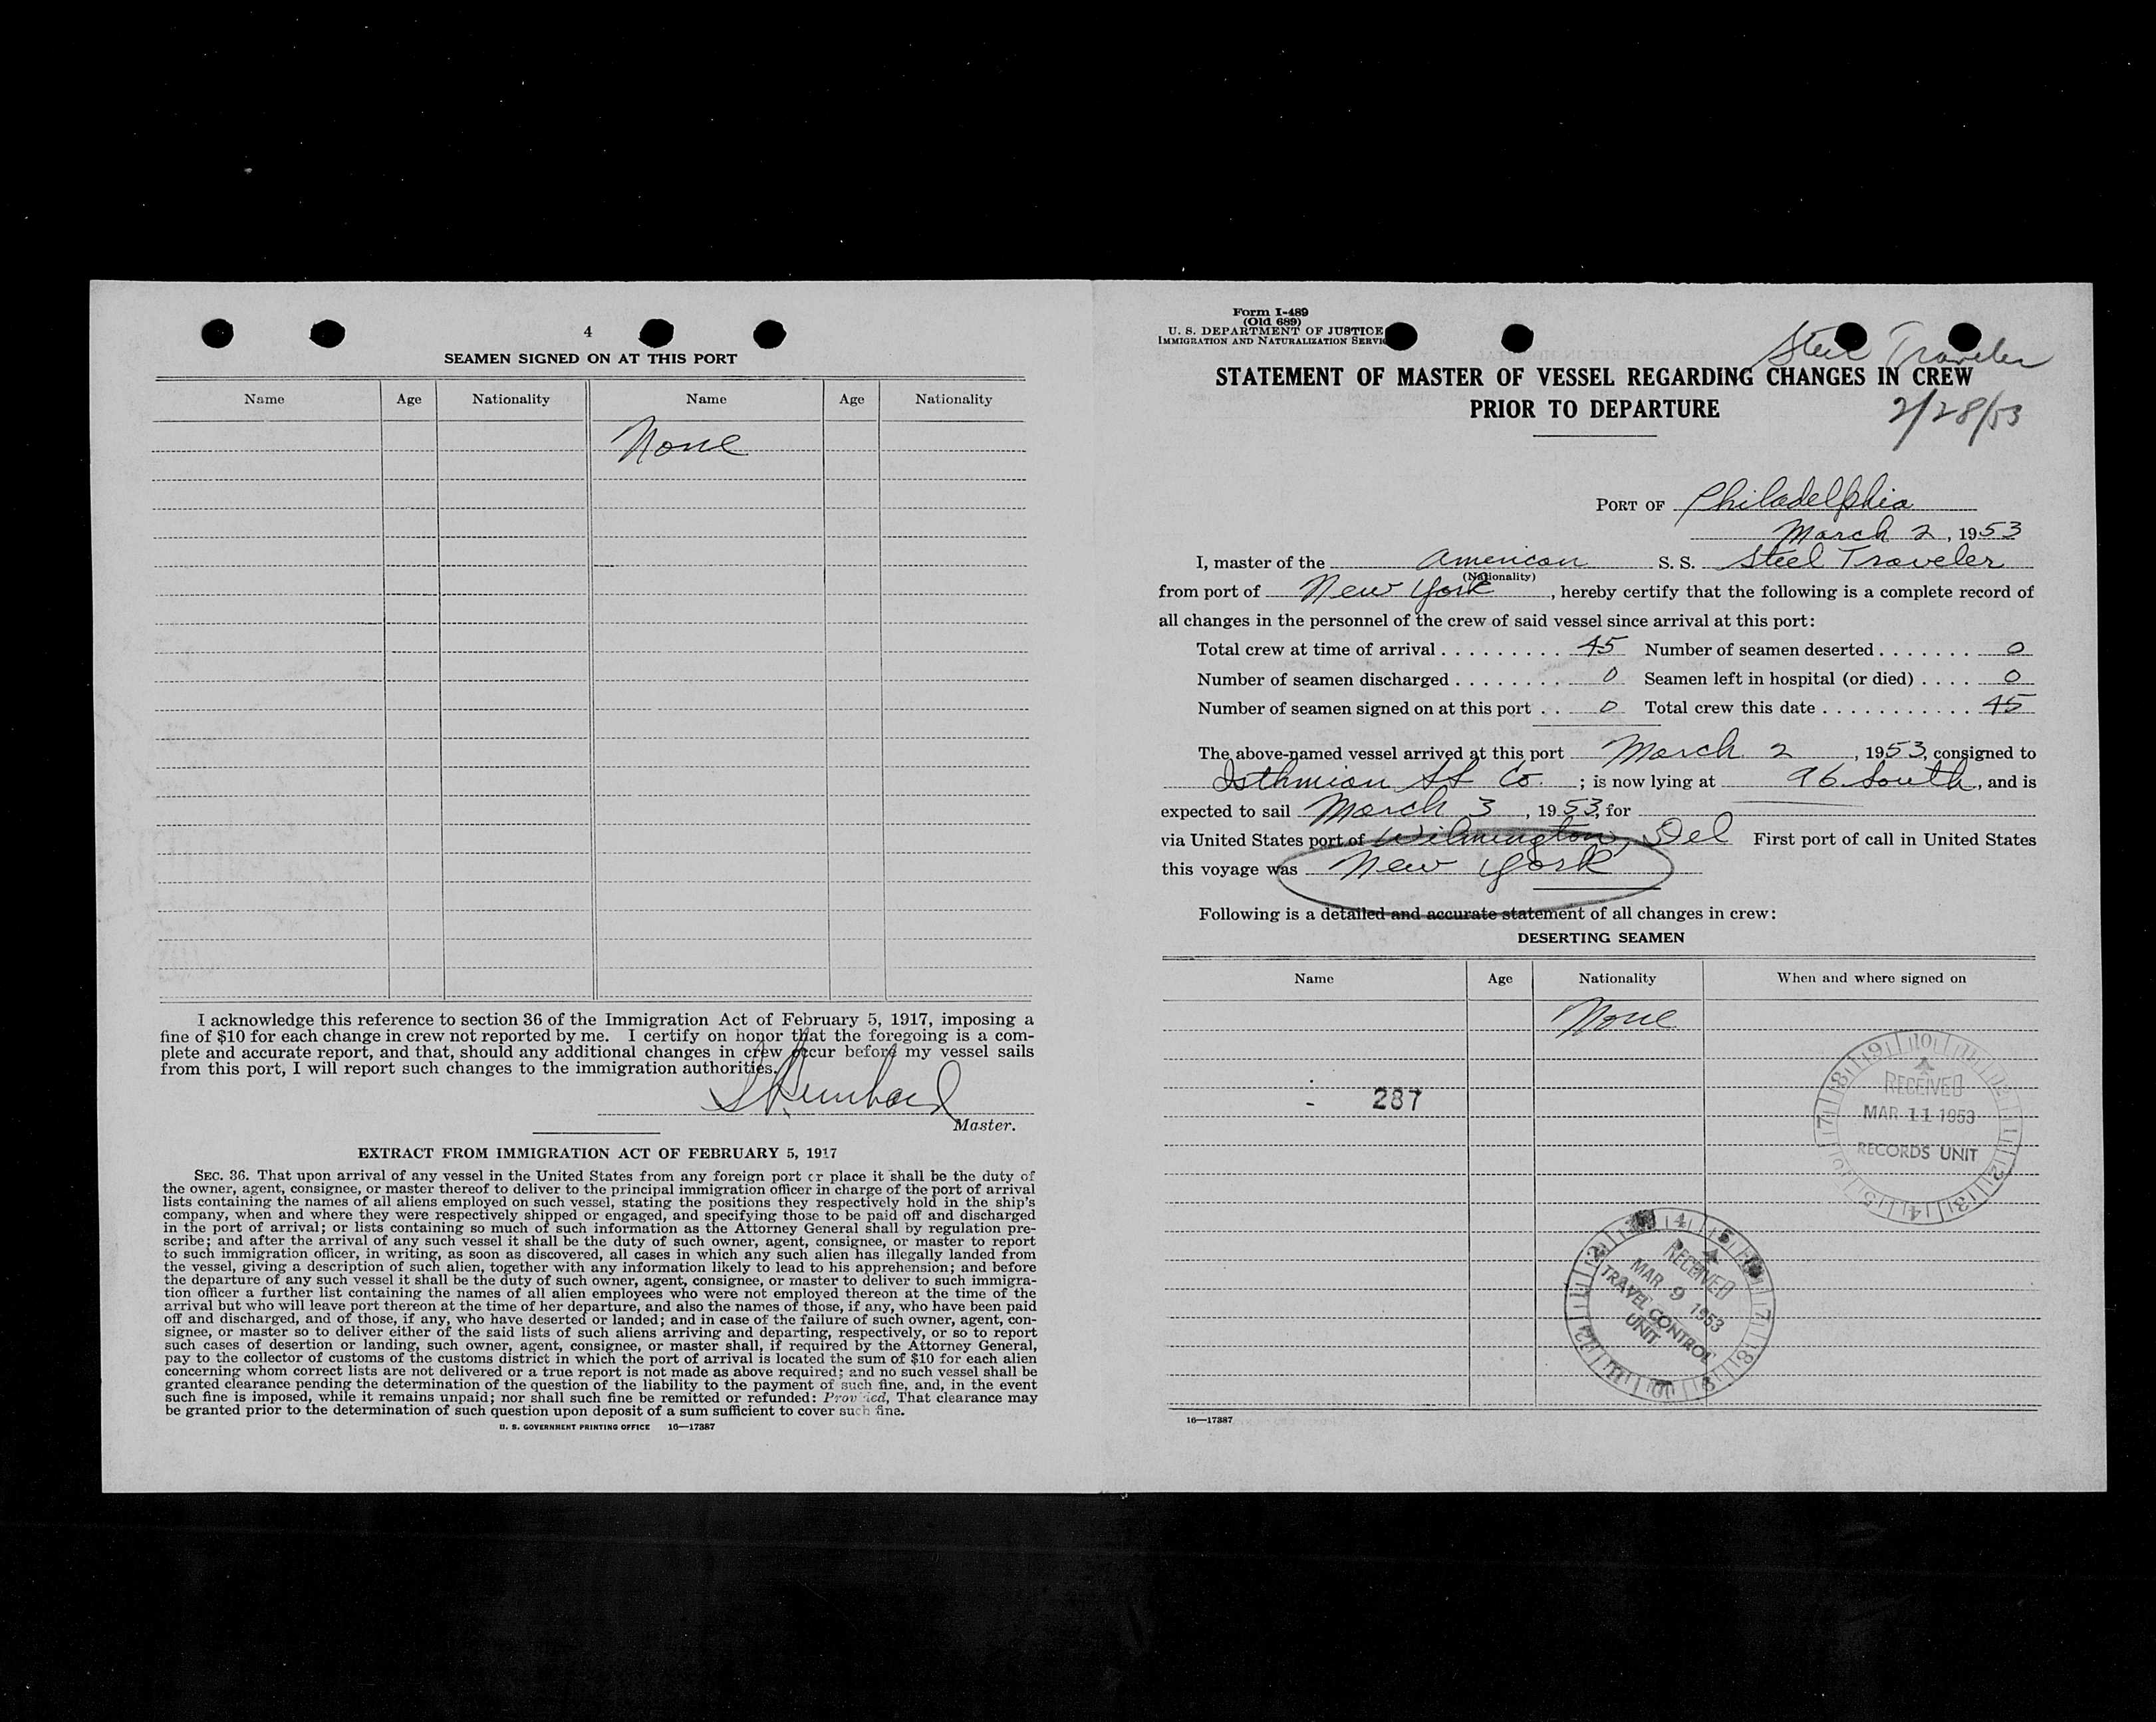 4
SEAMEN SIGNED ON AT THIS PORT
Name Age Nationality Name Age Nationality
None
I acknowledge this reference to section 36 of the Immigration Act of February 5, 1917, imposing a
fine of $10 for each change in crew not reported by me. I certify on honor that the foregoing is a com-
plete and accurate report, and that, should any additional changes in crew occur before my vessel sails
from this port, I will report such changes to the immigration authorities.
Master.
EXTRACT FROM IMMIGRATION ACT OF FEBRUARY 5, 1917
SEC. 36. That upon arrival of any vessel in the United States from any foreign port or place it shall be the duty of
the owner, agent, consignee, or master thereof to deliver to the principal immigration officer in charge of the port of arrival
lists containing the names of all aliens employed on such vessel, stating the positions they respectively hold in the ship's
company, when and where they were respectively shipped or engaged, and specifying those to be paid off and discharged
in the port of arrival; or lists containing so much of such information as the Attorney General shall by regulation pre-
scribe; and after the arrival of any such vessel it shall be the duty of such owner, agent, consignee, or master to report
to such immigration officer, in writing, as soon as discovered, all cases in which any such alien has illegally landed from
the vessel, giving a description of such alien, together with any information likely to lead to his apprehension; and before
the departure of any such vessel it shall be the duty of such owner, agent, consignee, or master to deliver to such immigra-
tion officer a further list containing the names of all alien employees who were not employed thereon at the time of the
arrival but who will leave port thereon at the time of her departure, and also the names of those, if any, who have been paid
off and discharged, and of those, if any, who have deserted or landed; and in case of the failure of such owner, agent, con-
signee, or master so to deliver either of the said lists of such aliens arriving and departing, respectively, or so to report
such cases of desertion or landing, such owner, agent, consignee, or master shall, if required by the Attorney General,
pay to the collector of customs of the customs district in which the port of arrival is located the sum of $10 for each alien
concerning whom correct lists are not delivered or a true report is not made as above required; and no such vessel shall be
granted clearance pending the determination of the question of the liability to the payment of such fine, and, in the event
such fine is imposed, while it remains unpaid; nor shall such fine be remitted or refunded: Provided, That clearance may
be granted prior to the determination of such question upon deposit of a sum sufficient to cover such fine.
U. S. GOVERNMENT PRINTING OFFICE 16—17387
Form I-489
(Old 689)
U. S. DEPARTMENT OF JUSTICE
IMMIGRATION AND NATURALIZATION SERVIC
Steel Traveler
STATEMENT OF MASTER OF VESSEL REGARDING CHANGES IN CREW
PRIOR TO DEPARTURE
2/28/53
PORT OF Philadelphia
March 2, 1953
I, master of the American S. S. Steel Traveler
(Nationality)
from port of New York, hereby certify that the following is a complete record of
all changes in the personnel of the crew of said vessel since arrival at this port:
Total crew at time of arrival . . . . . . . . . 45 Number of seamen deserted . . . . . . . 0
Number of seamen discharged . . . . . . . . 0 Seamen left in hospital (or died) . . . . 0
Number of seamen signed on at this port . . 0 Total crew this date . . . . . . . . . . . 45
The above-named vessel arrived at this port March 2, 1953, consigned to
Isthmian SS Co. ; is now lying at 96 South, and is
expected to sail March 3, 1953, for
via United States port of Wilmington, Del First port of call in United States
this voyage was New York
Following is a detailed and accurate statement of all changes in crew:
DESERTING SEAMEN
Name Age Nationality When and where signed on
None
287
RECEIVED
MAR 11 1953
RECORDS UNIT
RECEIVED
MAR 9 1953
TRAVEL CONTROL
UNIT
16—17387